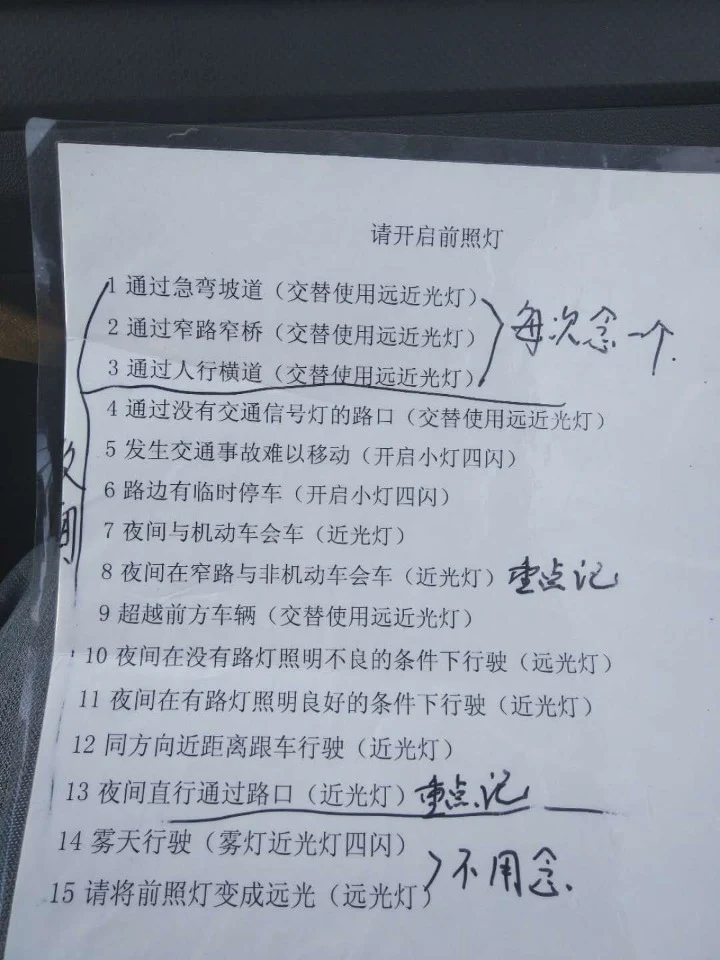 请开启前照灯
1 通过急弯坡道（交替使用远近光灯）
2 通过窄路窄桥（交替使用远近光灯）
每次念一个.
3 通过人行横道（交替使用远近光灯）
4 通过没有交通信号灯的路口（交替使用远近光灯）
5 发生交通事故难以移动（开启小灯四闪）
6 路边有临时停车（开启小灯四闪）
7 夜间与机动车会车（近光灯）
8 夜间在窄路与非机动车会车（近光灯）重点记
9 超越前方车辆（交替使用远近光灯）
10 夜间在没有路灯照明不良的条件下行驶（远光灯）
11 夜间在有路灯照明良好的条件下行驶（近光灯）
12 同方向近距离跟车行驶（近光灯）
13 夜间直行通过路口（近光灯）重点记
14 雾天行驶（雾灯近光灯四闪）
15 请将前照灯变成远光（远光灯）
不用念.